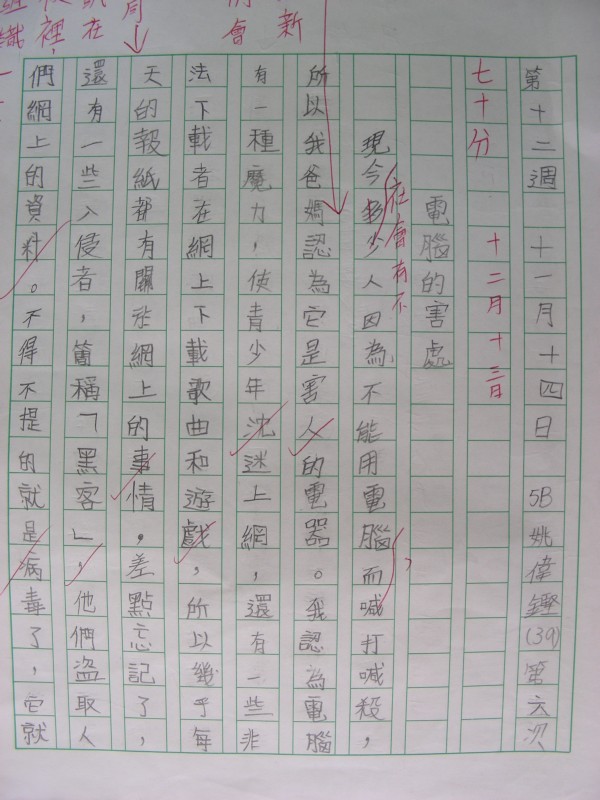 新
會
第十二週 十一月十四日 5B 姚偉鏗(39) 第六次
七十分 十二月十三日
電腦的害處
社會有不
現今多少人因為不能用電腦而喊打喊殺，
所以我爸媽認為它是害人的電器。我認為電腦
有一種魔力，使青少年沈迷上網，還有一些非
法下載者在網上下載歌曲和遊戲，所以幾乎每
天的報紙都有關於網上的事情，差點忘記了，
還有一些入侵者，簡稱「黑客」，他們盜取人
們網上的資料。不得不提的就是病毒了，它就